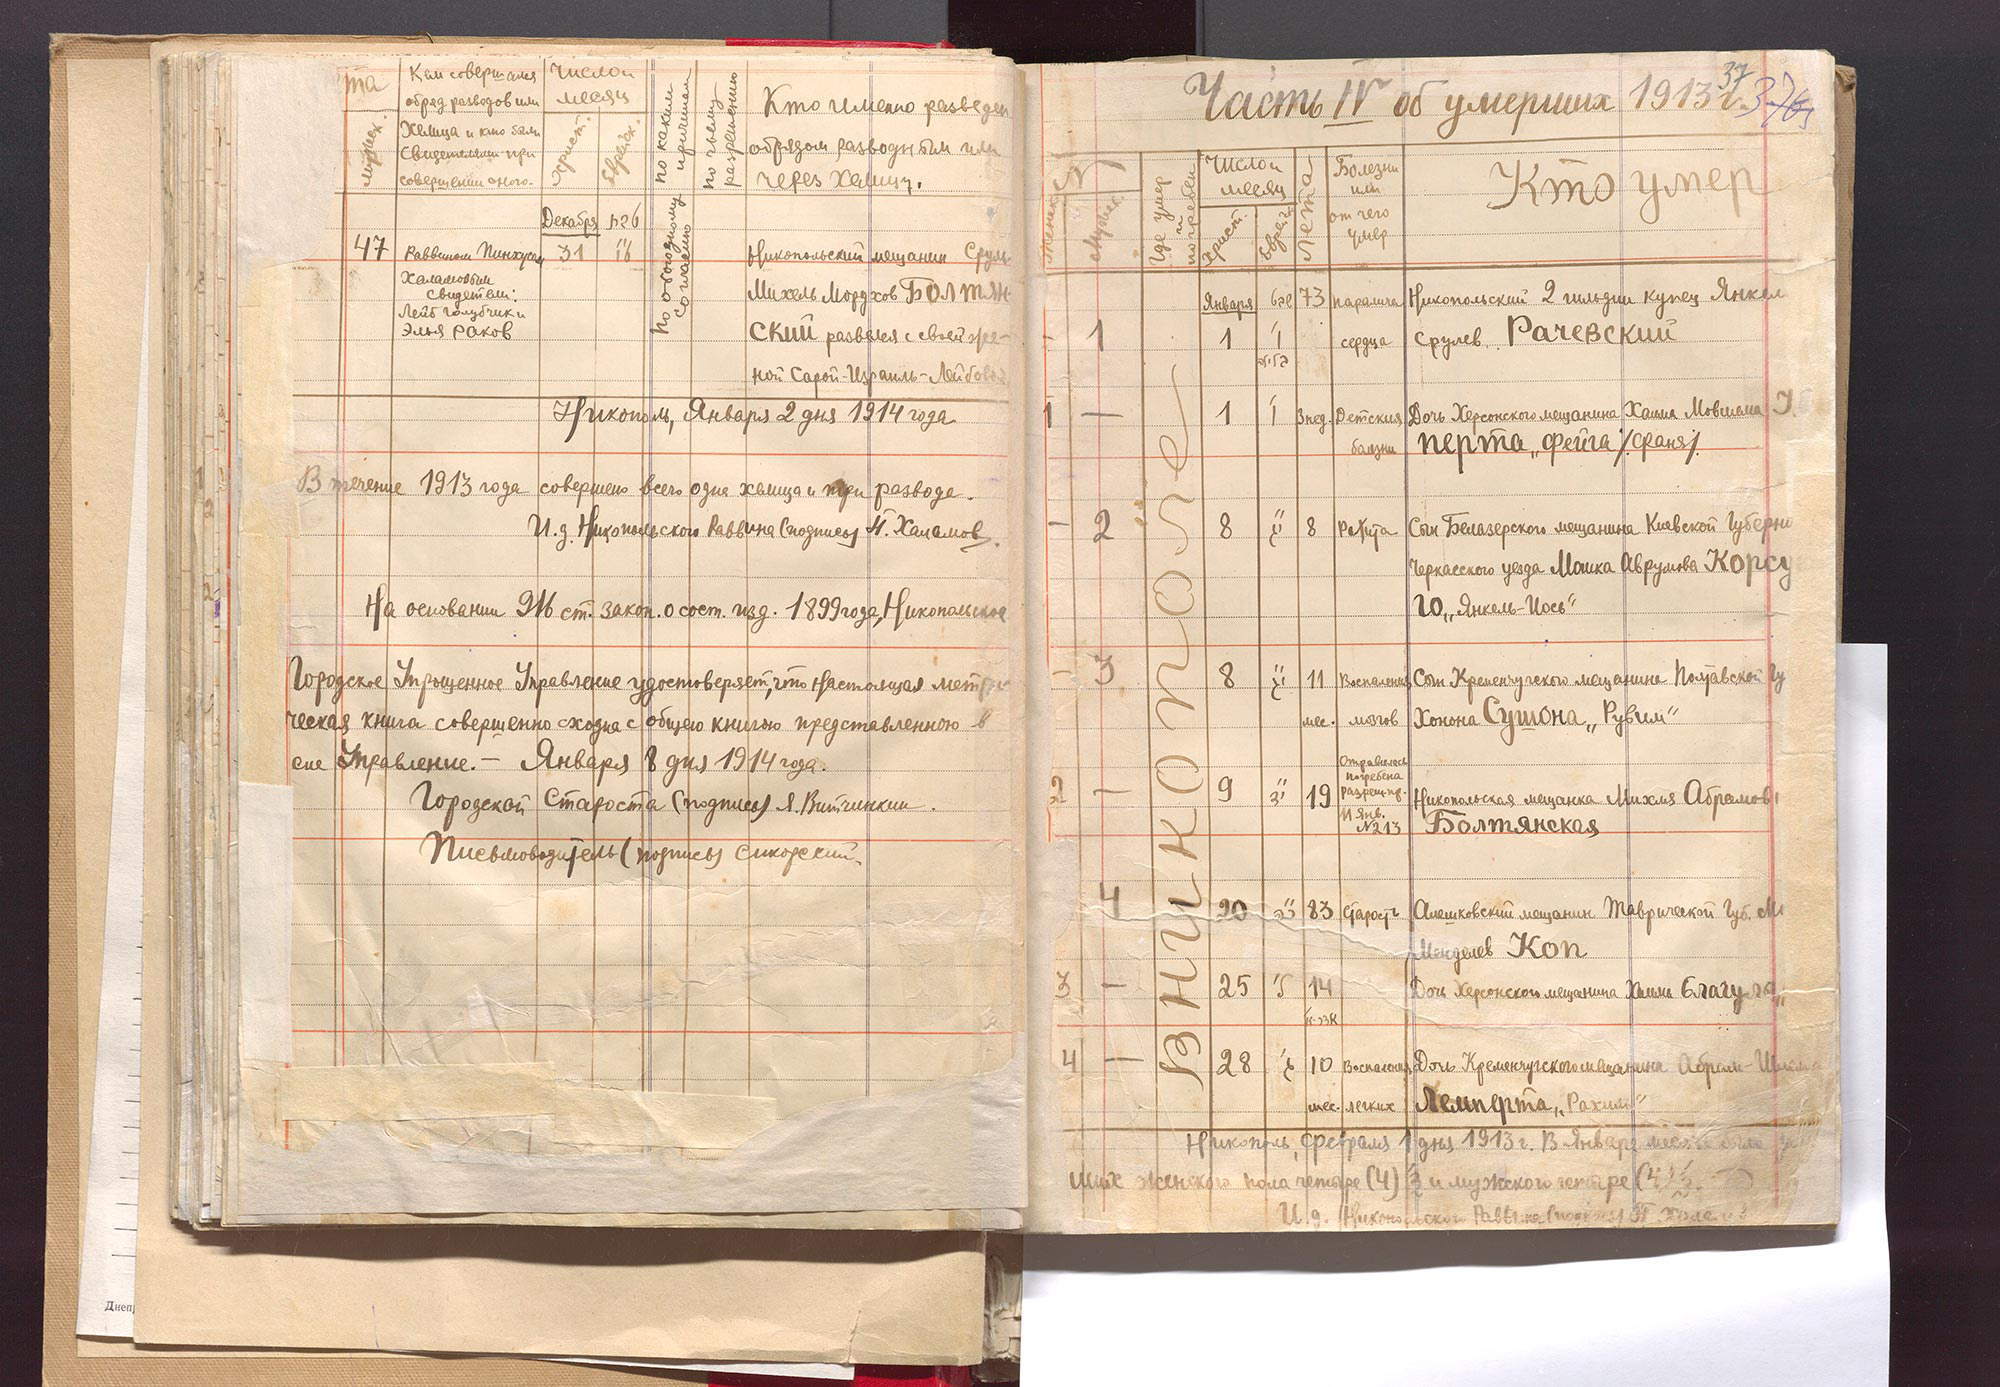 та
мужск.
Кем совершался
обряд разводов или
Халица и кто были
Свидетелями при
совершении оного.
Числои
месяц
Христ.
Еврейск.
по каким
причинам
по чьему
разрешению
Кто именно разведен
обрядом разводным или
через Халицу.
Декабря
47
Раввином Пинхусом
31
Никопольский мещанин Сруль-
Халамовым
Свидетели:
Лейб Голубчик и
Элья Раков
по обоюдному
согласию
Михель Мордхов БОЛТЯН-
СКИЙ развелся с своей же-
ной Сарой-Израиль-Лейбовой
Никополь, Января 2 дня 1914 года
В течение 1913 года совершено всего одна халица и три развода.
И.д. Никопольского Раввина (подпись) Н. Халамов.
На основании 916 ст. закон. о сост. изд. 1899 года, Никопольское
Городское Упрощенное Управление удостоверяет, что настоящая метри-
ческая книга совершенно сходна с общею книгою представленною в
сие Управление. — Января 8 дня 1914 года.
Городской Староста (подпись)
Письмоводитель (подпись) Сикорский.
Днеп
Часть IV об умерших 1913 г.
37
Женск.
Мужск.
Где умер
и
погребен
Числои
месяц
Христ.
Еврейск.
Лета
Болезни
или
от чего
умер
Кто умер
В Никополе
Января
73 паралича Никопольский 2 гильдии купец Янкель
- 1 1 сердца Срулев Рачевский
1 — 1 3 нед. Детския Дочь Херсонского мещанина Хаима Мовшева
болезни перта „Фейга /Фаня/
- 2 8 8 Рожита Сын Белазерского мещанина Киевской Губерни
Черкасского уезда Мошка Аврумова Корсу
го „Янкель-Иось"
- 3 8 11 Воспаления Сын Кременчугского мещанина Полтавской Гу
мес. мозгов Хонона Сушона „Рувим"
Отравилась
погребена
разреш. пр.
11 Янв.
№213
2 — 9 19 Никопольская мещанка Михля Абрамов
Болтянская
4 20 83 Старость Алешковский мещанин Таврической Губ.
Менделев Коп
3 — 25 14 Дочь Херсонского мещанина Хаима Благу
4 — 28 10 Воспаления Дочь Кременчугского мещанина Абрам-
мес. легких Лемперта „Рахиль"
Никополь, Февраля 1 дня 1913 г. В Январе месяце было
ших женского пола четыре (4) и мужского четыре (4)
И.д. Никопольского Раввина (подпись)